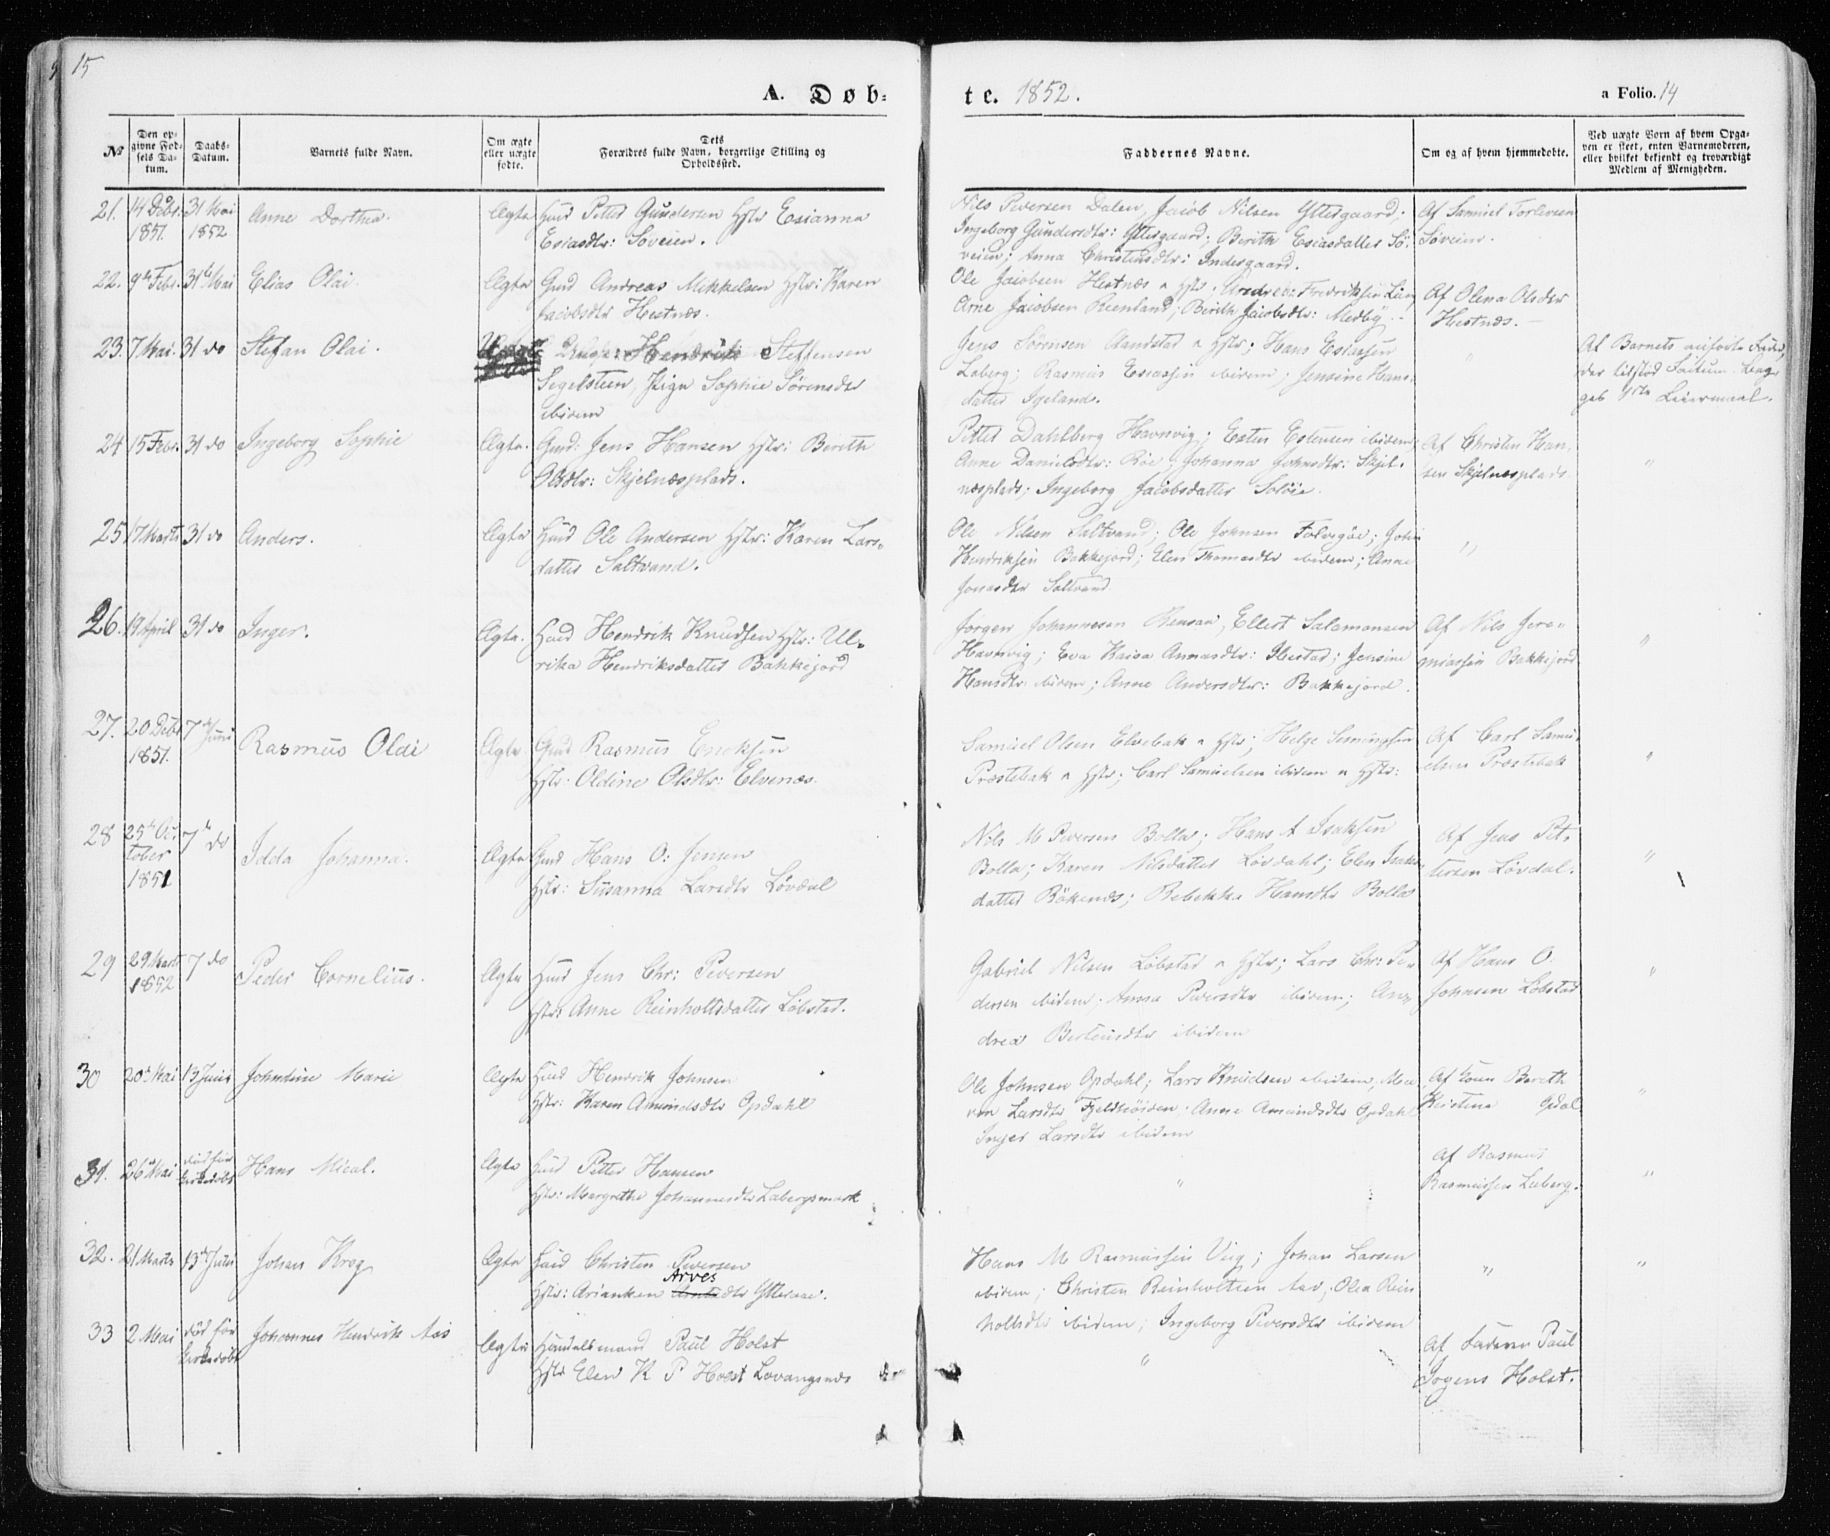 15
A. Døb-
te. 1852.
a Folio. 14
No
Den op-
givne Fød-
sels Da-
tum.
Daabs-
Datum.
Barnets fulde Navn.
Om ægte
eller uægte
fødte.
Dets
Forældres fulde Navn, borgerlige Stilling og
Opholdssted.
Faddernes Navne.
Om og af hvem hjemmedøbte.
Ved uægte Børn af hvem Opga-
ven er skeet, enten Barnemoderen,
eller hvilket bekjendt og troværdigt
Medlem af Menigheden.
21. 14 Debr. 1851. 31 Mai 1852 Anne Dorthea. Ægte Huusd Petter Gundersen Hstr Esianna
Esiasdtr: Søveien.
Nils Pedersen Dalen, Jacob Nilsen Yttergaard;
Ingeborg Gundersdtr: Yttergaard; Berith Esiasdatter Sö-
veien; Anna Christensdtr: Indergaard.
Af Samuel Torlevsen
Søveien.
22. 9de Febr. 31te Mai Elias Olai. Ægte Gmd Andreas Mikkelsen Hstr: Karen
Jacobsdtr Hestnæs.
Ole Jacobsen Hestnæs & Hstr.
Arne Jacobsen Reenland; Berith Jacobsdtr: Medby.
Af Olena Olsdtr
Hestnæs.
23. 7 Mai. 31 do Stefan Olai. Uægte Hendrik Steffensen
Segelsteen, Pige Sophie Sørensdtr
ibidem
Jens Sørensen Sandstad & Hstr; Hans Esiassen
Laberg; Rasmus Esiassen ibidem; Jensine Hans-
datter Igeland.
Af Barnets
24 15 Febr. 31 do Ingeborg Sophie Ægte. Gmd: Jens Hansen Hstr: Berith
Olsdtr: Skjelnæsplads.
Petter Dahlberg Havnvig; Esten Estensen ibidem;
Anne Danielsdtr: Röe; Johanna Johnsdtr: Skjel-
næsplads; Ingeborg Jacobsdatter Soløie.
Af Christen Han-
sen Skjelnæsplads
"
25 17 Marts 31 do Anders. Ægte Huusd Ole Andersen Hstr: Karen Lars-
datter Saltvand.
Ole Nilsen Saltvand; Ole Johnsen; John
Hendriksen Bakkejord; Elen Thomasdtr ibidem; Anne
Jonasdtr Saltvand
"
26. 19 April 31 do Inger. Ægte. Huusd Hendrik Knudsen Hstr: Ul-
rika Hendriksdatter Bakkejord
Jørgen Johannesen Renså, Ellert Salamonsen
Havnvig; Eva Kaisa; Jensine
Hansdtr ibidem; Anne Andersdtr: Bakkejord.
Af Nils Jere-
miassen Bakkejord
"
27. 20 Debr 1851. 7de Juni Rasmus Olai Ægte. Gmd Rasmus Enoksen
Hstr: Oldine Olsdtr: Elvenæs.
Samuel Olsen Elvebak & Hstr; Helge Simonssen
Præstebak & Hstr; Carl Samuelsen ibidem & Hstr:
Af Carl Samu-
elsen Præstebak
"
28 25de October 1851 7de do Idda Johanna. Ægte Gmd Hans O: Jensen
Hstr: Susanna Larsdtr Løvdal
Nils M Pedersen Bolla; Hans A Isaksen
Bolla; Karen Nilsdatter Løvdahl; Elen Isaks-
datter Rökenæs; Rebekka Hansdtr Bolla
Af Jens Pet-
tersen Løvdal.
"
29 29 Marts 1852 7 do Peder Cornelius. Ægte Huusd Jens Chr: Pedersen
Hstr: Anne Reinholtsdatter Löbstad.
Gabriel Nilsen Löbstad & Hstr; Lars Chr: Pe-
dersen ibidem. Anna Pedersdtr ibidem; An-
drea Bertensdtr ibidem
Af Hans O:
Johnsen Løbstad
"
30 20de Mai 13 Juni Johndine Marie Ægte Huusd Hendrik Johnsen
Hstr: Karen Amundsdtr Opdahl
Ole Johnsen Opdahl; Lars Knudsen ibidem, Ma-
ren Larsdtr; Anne Amundsdtr Opdahl
Inger Larsdtr ibidem
Af Konen Bereth
Kristina Opdal
"
31. 26de Mai død før Kirkedåbt Hans Mical. Ægte Huusd Petter Hansen
Hstr: Margrethe Johannesdtr Labergsmark
"
Af Rasmus
Rasmussen Laberg.
"
32. 21 Marts 13de Juni Johan Krog Ægte Huusd Christen Pedersen
Hstr: Arianken Arves dtr Ytteraae.
Hans M Rasmussen Viig; Johan Larsen
ibidem; Christen Reinholtsen Aae; Olea Rein-
holtsdtr ibidem; Ingeborg Pedersdtr ibidem
"
"
33 2 Mai død før Kirkedåbt Johannes Hendrik Aas Ægte Handelsmand Paul Holst
Hstr Elen K P Holst Lavangsnæs
"
Af Faderen Paul
Jogens Holst.